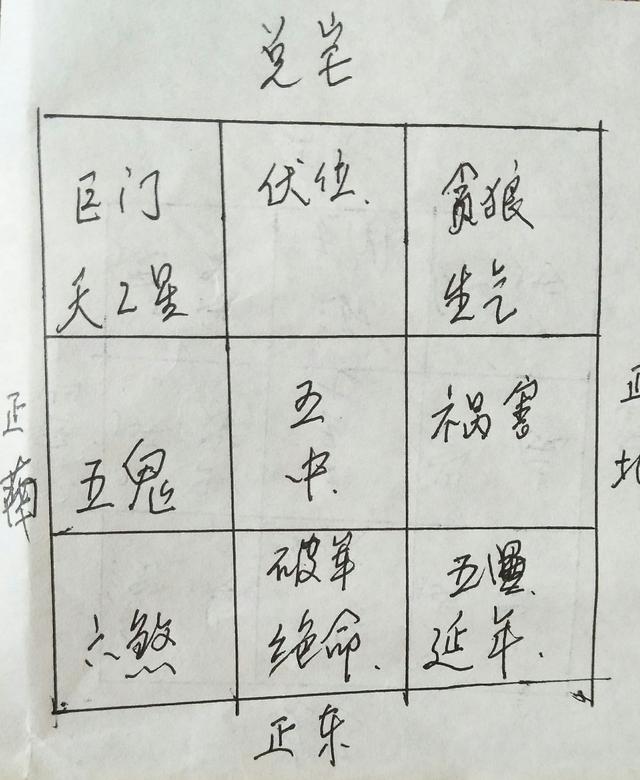 兑宅
巨门
天乙星
伏位.
貪狼
生气
正南
五鬼
五
中.
祸害
正北
六煞
破军
绝命.
五
延年.
正东